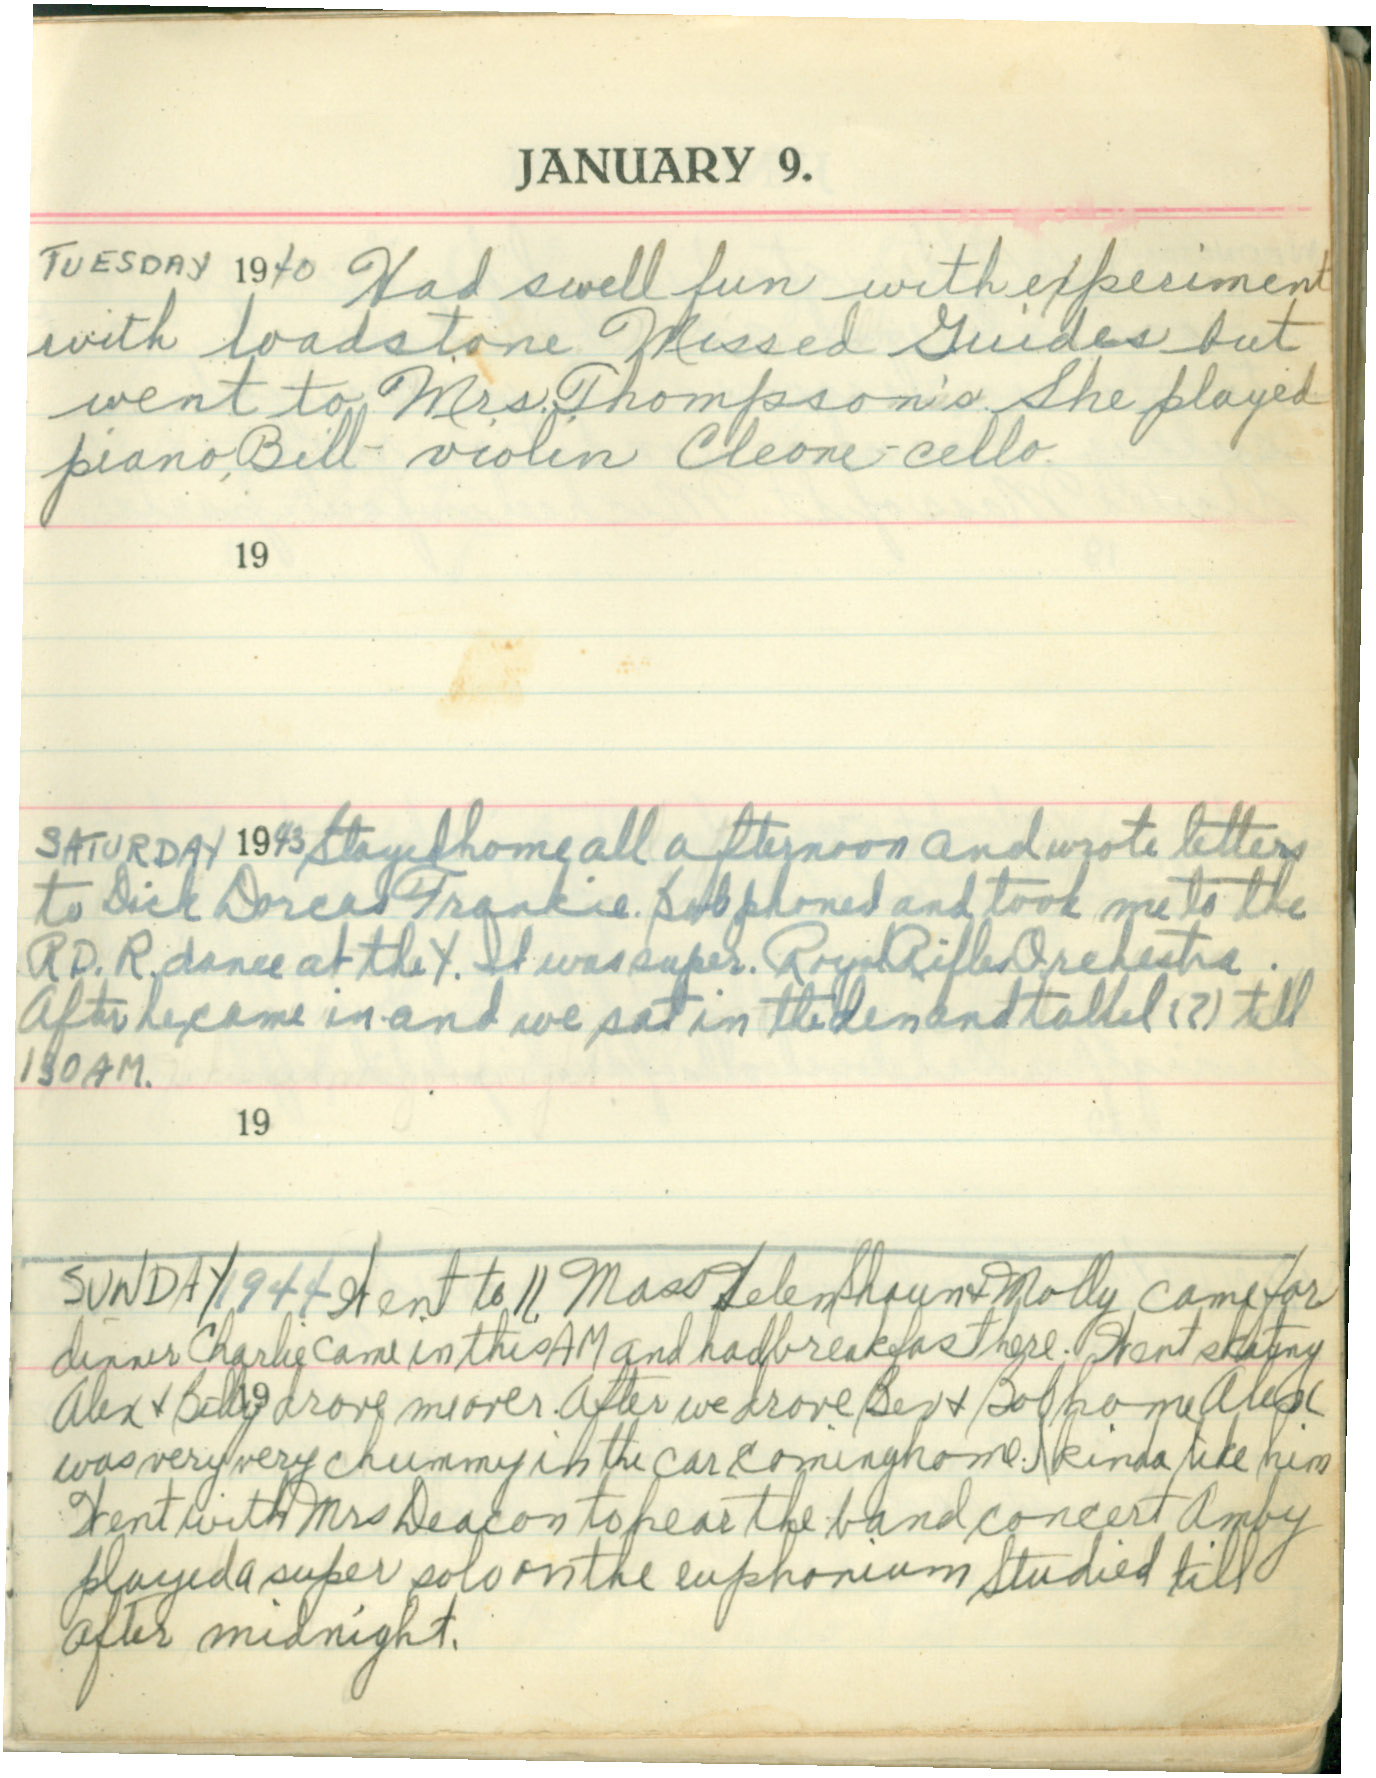 JANUARY 9.
TUESDAY 1940 Had swell fun with experiment
with loadstone Missed Guides but
went to Mrs. Thompson's. She played
piano, Bill - violin Cleone - cello.
19
SATURDAY 1943 Stayed home all afternoon and wrote letters
to Dick Dorcas Frankie. phoned and took me to the
R.D.R. dance at the Y. It was super. Royal Rifles Orchestra.
After he came in and we sat in the den and talked (?) till
130 AM.
19
SUNDAY 1944 Went to 11 Mass Helen Shaun & Molly came for
dinner Charlie came in this AM and had breakfast here. Went skating
19
Alex & Billy drove me over. After we drove Bev & Bob home Alex
was very very chummy in the car coming home. I kinda like him
Went with Mrs Deacon to hear the band concert Amby
played a super solo on the euphonium Studied till
after midnight.